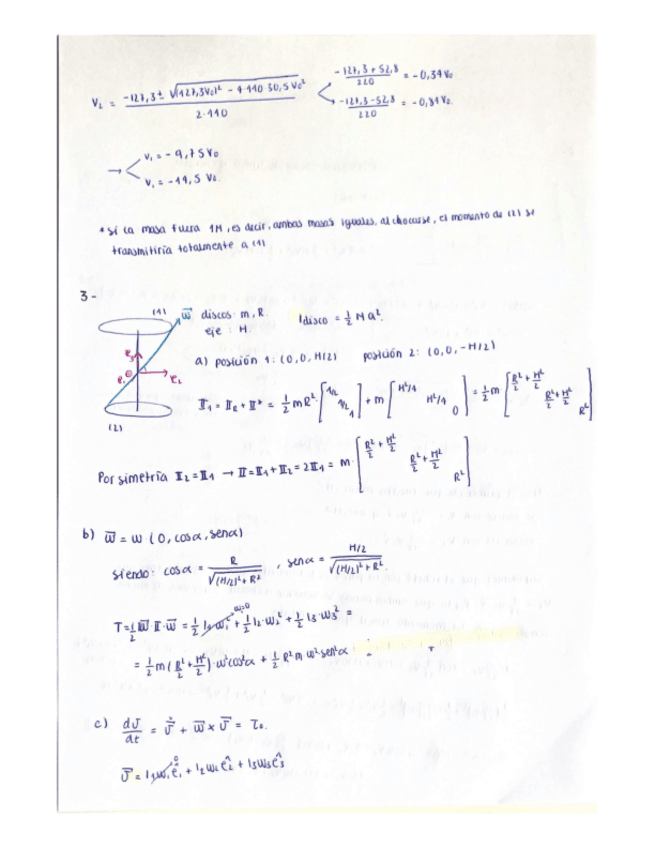 V₂ = (-127,3 ± √((127,3V₀)² - 4·110·30,5V₀²)) / (2·110) < (-127,3+52,8)/220 = -0,34V₀
(-127,3-52,8)/220 = -0,84V₀.
→ < V₁ = -9,75V₀
V₁ = -14,5 V₀.
* si la masa fuera 1M, es decir, ambas masas iguales, al chocarse, el momento de (2) se
transmitiría totalmente a (1)
3-
(1) w⃗ discos: m, R. I disco = ½ M a².
eje : H.
e₃ e₁ e₂
a) posición 1: (0,0, H/2) posición 2: (0,0,-H/2)
(2)
𝕀₁ = 𝕀_R + 𝕀* = ½ mR² [1/2 1/2 1] + m [H²/4 H²/4 0] = ½ m [R²/2 + H²/2 R²/2 + H²/2 R²]
Por simetría 𝕀₂ = 𝕀₁ → 𝕀 = 𝕀₁ + 𝕀₂ = 2𝕀₁ = m· [R²/2 + H²/2 R²/2 + H²/2 R²]
b) w⃗ = w (0, cosα, senα)
siendo: cosα = R/√((H/2)²+R²) , senα = (H/2)/√((H/2)²+R²)
w₁=0
T = ½ w⃗ 𝕀·w⃗ = ½ I₁·w₁² + ½ I₂·w₂² + ½ I₃·w₃² =
= ½ m (R²/2 + H²/2)·w²cos²α + ½ R² m w² sen²α
c) dJ⃗/dt = J⃗ + w⃗ × J⃗ = τ₀.
0
J⃗ = I₁w₁ê₁ + I₂w₂ê₂ + I₃w₃ê₃